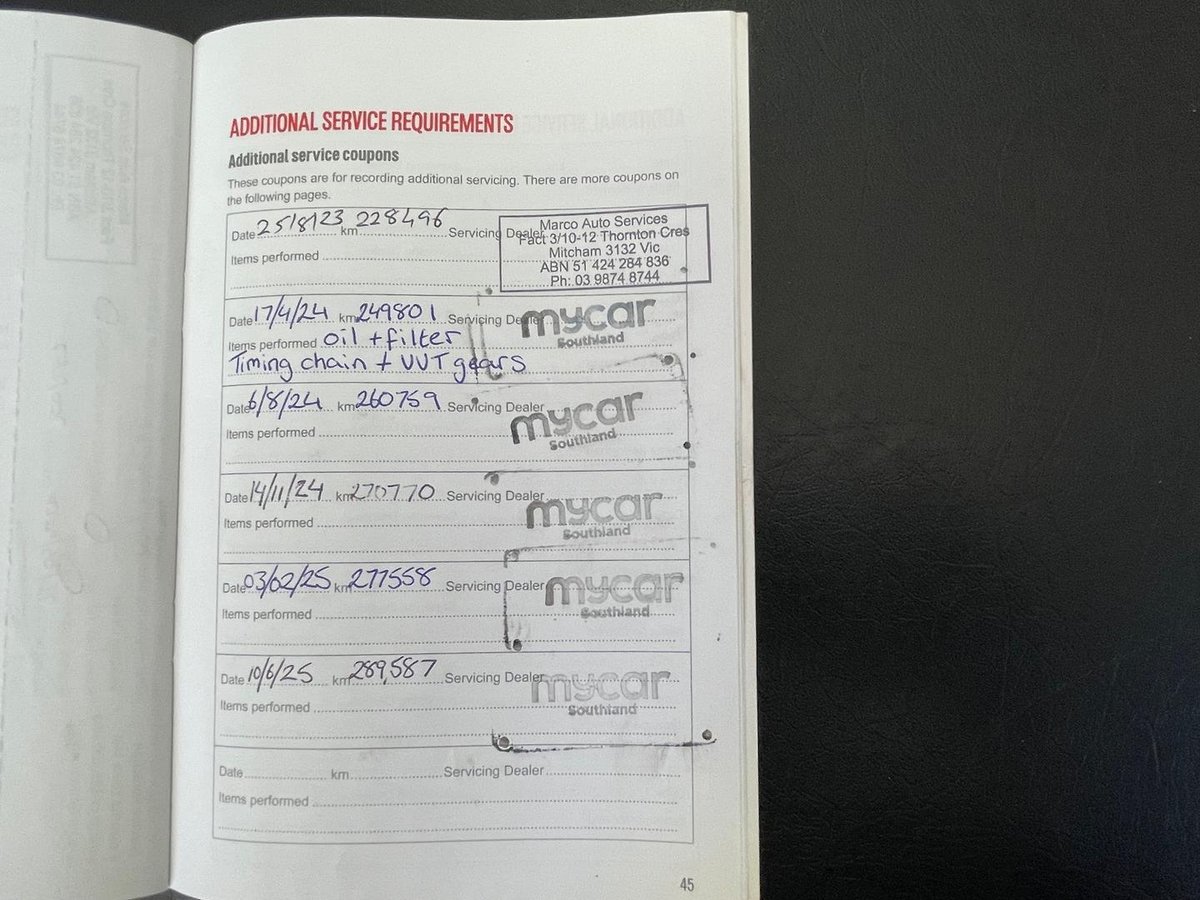 ADDITIONAL SERVICE REQUIREMENTS
Additional service coupons
These coupons are for recording additional servicing. There are more coupons on
the following pages.
Date 25/8/23 km 228496 Servicing Dealer
Marco Auto Services
Fact 3/10-12 Thornton Cres
Mitcham 3132 Vic
ABN 51 424 284 836
Ph: 03 9874 8744
Items performed
Date 17/4/24 km 249801 Servicing Dealer mycar
Southland
Items performed oil + filter
Timing chain + VVT gears
Date 6/8/24 km 260759 Servicing Dealer mycar
Southland
Items performed
Date 14/11/24 km 270770 Servicing Dealer mycar
Southland
Items performed
Date 03/02/25 km 277558 Servicing Dealer mycar
Southland
Items performed
Date 10/6/25 km 289,587 Servicing Dealer mycar
Southland
Items performed
Date km Servicing Dealer
Items performed
45